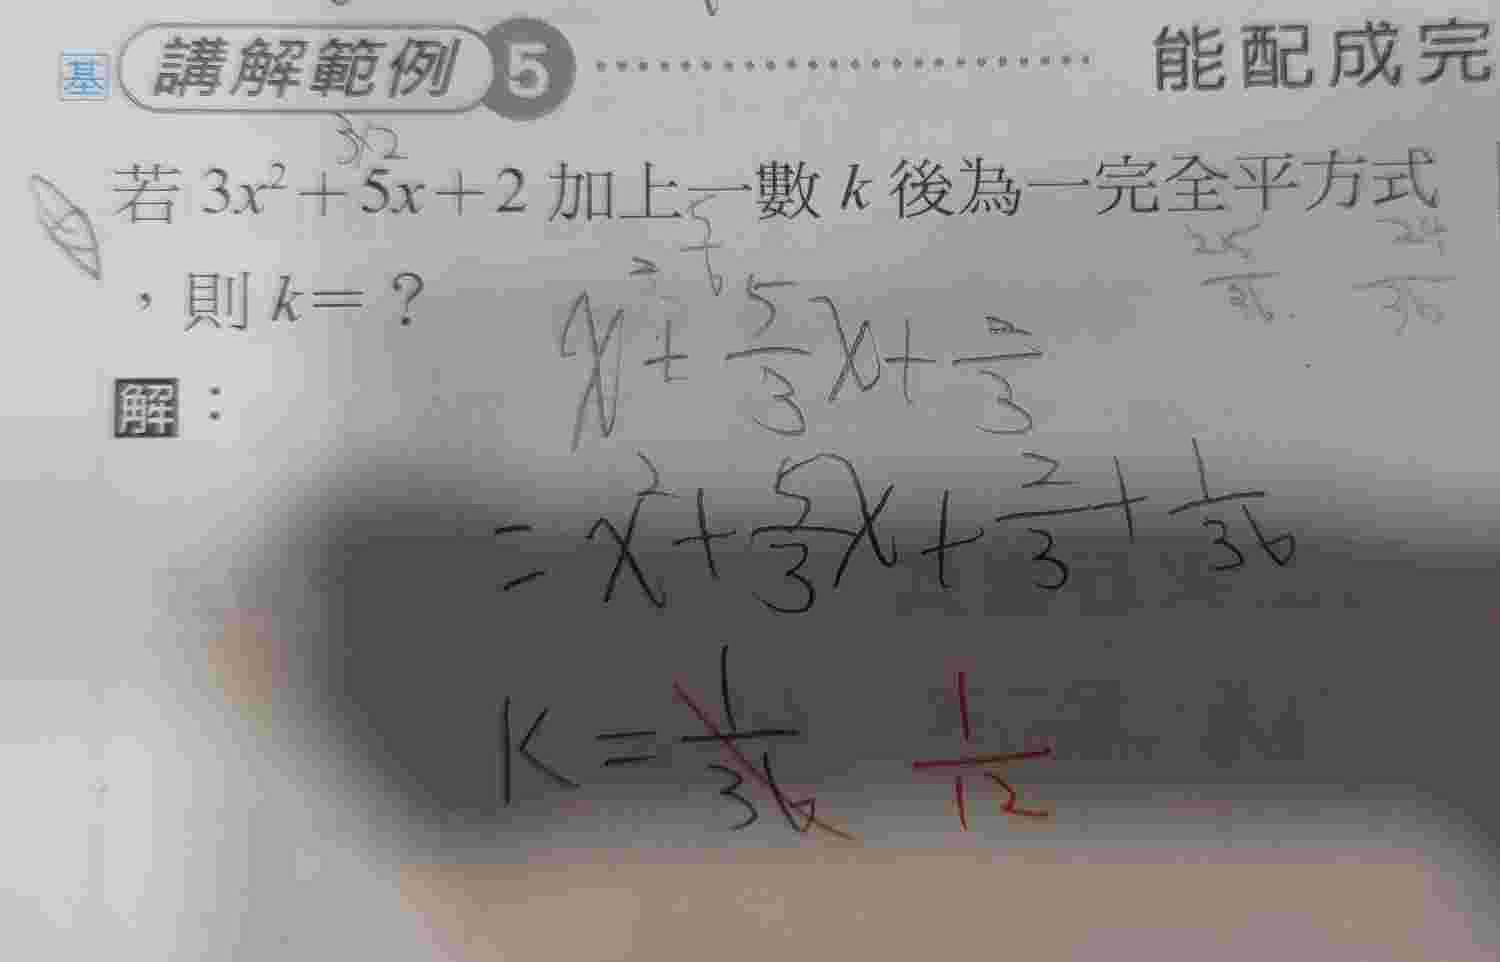 基 講解範例 5 能配成完
3x2
若 3x²+5x+2 加上一數 k 後為一完全平方式
，則 k=？
5/6
25/36 24/36
x²+5/3x+2/3
解：
=x²+5/3x+2/3+1/36
K=1/36 1/12